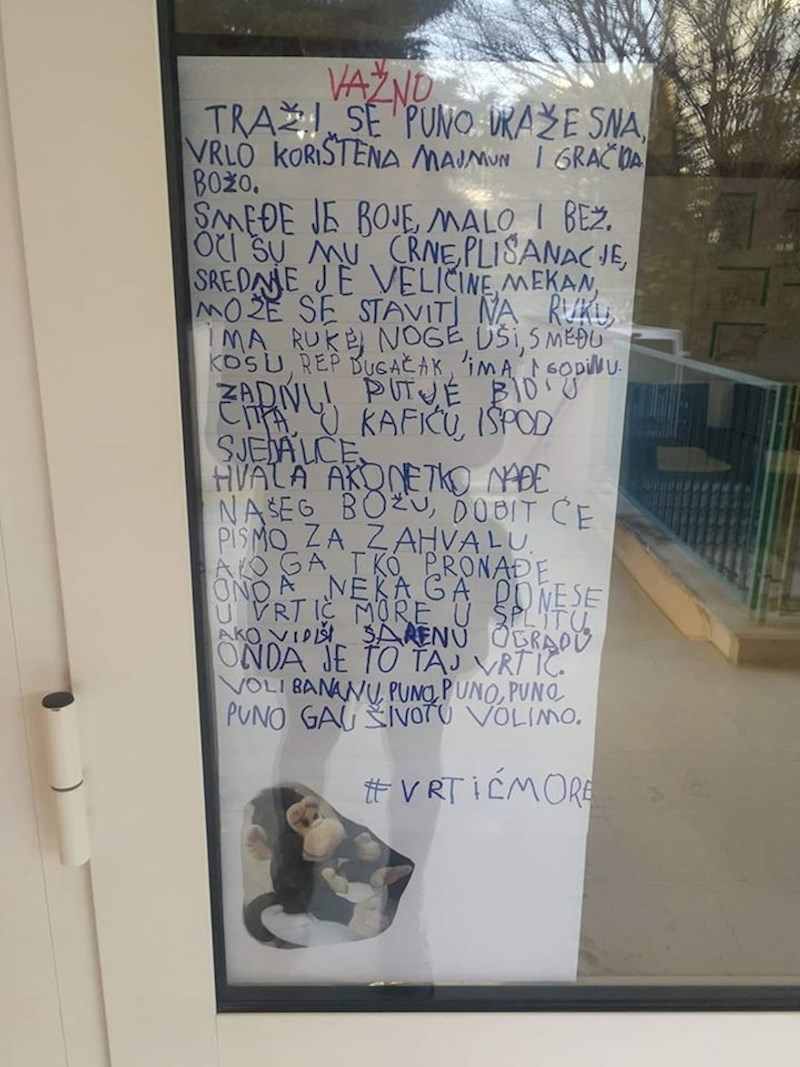 VAŽNO
TRAŽI SE PUNO DRAŽESNA,
VRLO KORIŠTENA MAJMUN IGRAČKA
BOŽO.
SMEĐE JE BOJE, MALO I BEŽ.
OČI SU MU CRNE, PLIŠANAC JE,
SREDNJE JE VELIČINE, MEKAN,
MOŽE SE STAVITI NA RUKU,
IMA RUKE, NOGE UŠI, SMEĐU
KOSU, REP DUGAČAK, IMA 1 GODINU.
ZADNJI PUT JE BIO U
ČITA, U KAFIĆU, ISPOD
SJEDALICE.
HVALA AKO NETKO NAĐE
NAŠEG BOŽU, DOBIT ĆE
PISMO ZA ZAHVALU.
AKO GA TKO PRONAĐE
ONDA NEKA GA DONESE
U VRTIĆ MORE U SPLITU
AKO VIDIŠ ŠARENU OGRADU
ONDA JE TO TAJ VRTIČ.
VOLI BANANU, PUNO, PUNO, PUNO
PUNO GA U ŽIVOTU VOLIMO.
#VRTIĆMORE